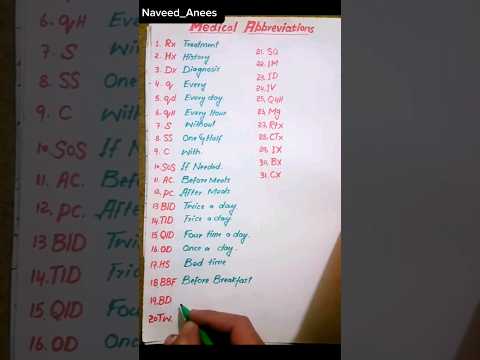 Naveed_Anees
Medical Abbreviations
1. Rx Treatment
2. Hx History
3. Dx Diagnosis
4. q Every
5. qd Every day
6. qH Every Hour
7. S Without
8. SS One & Half
9. C With
10. SOS If Needed.
11. AC. Before Meals
12. PC. After Meals
13 BID Twice a day
14. TID Trice a day
15. QID Four time a day.
16. OD Once a day.
17. HS Bed time
18 BBF Before Breakfast
19. BD
20 TW.
21. SQ
22. IM
23. ID
24. IV
25. Q4H
26. Mg
27. RTx
28. CTx
29. IX
30. BX
31. CX
6. qH E
7. S
8. SS One
9. C With
10. SOS If N
11. AC. Before
12. PC. After
13 BID Twic
14. TID Tric
15. QID Four
16. OD Once
ions